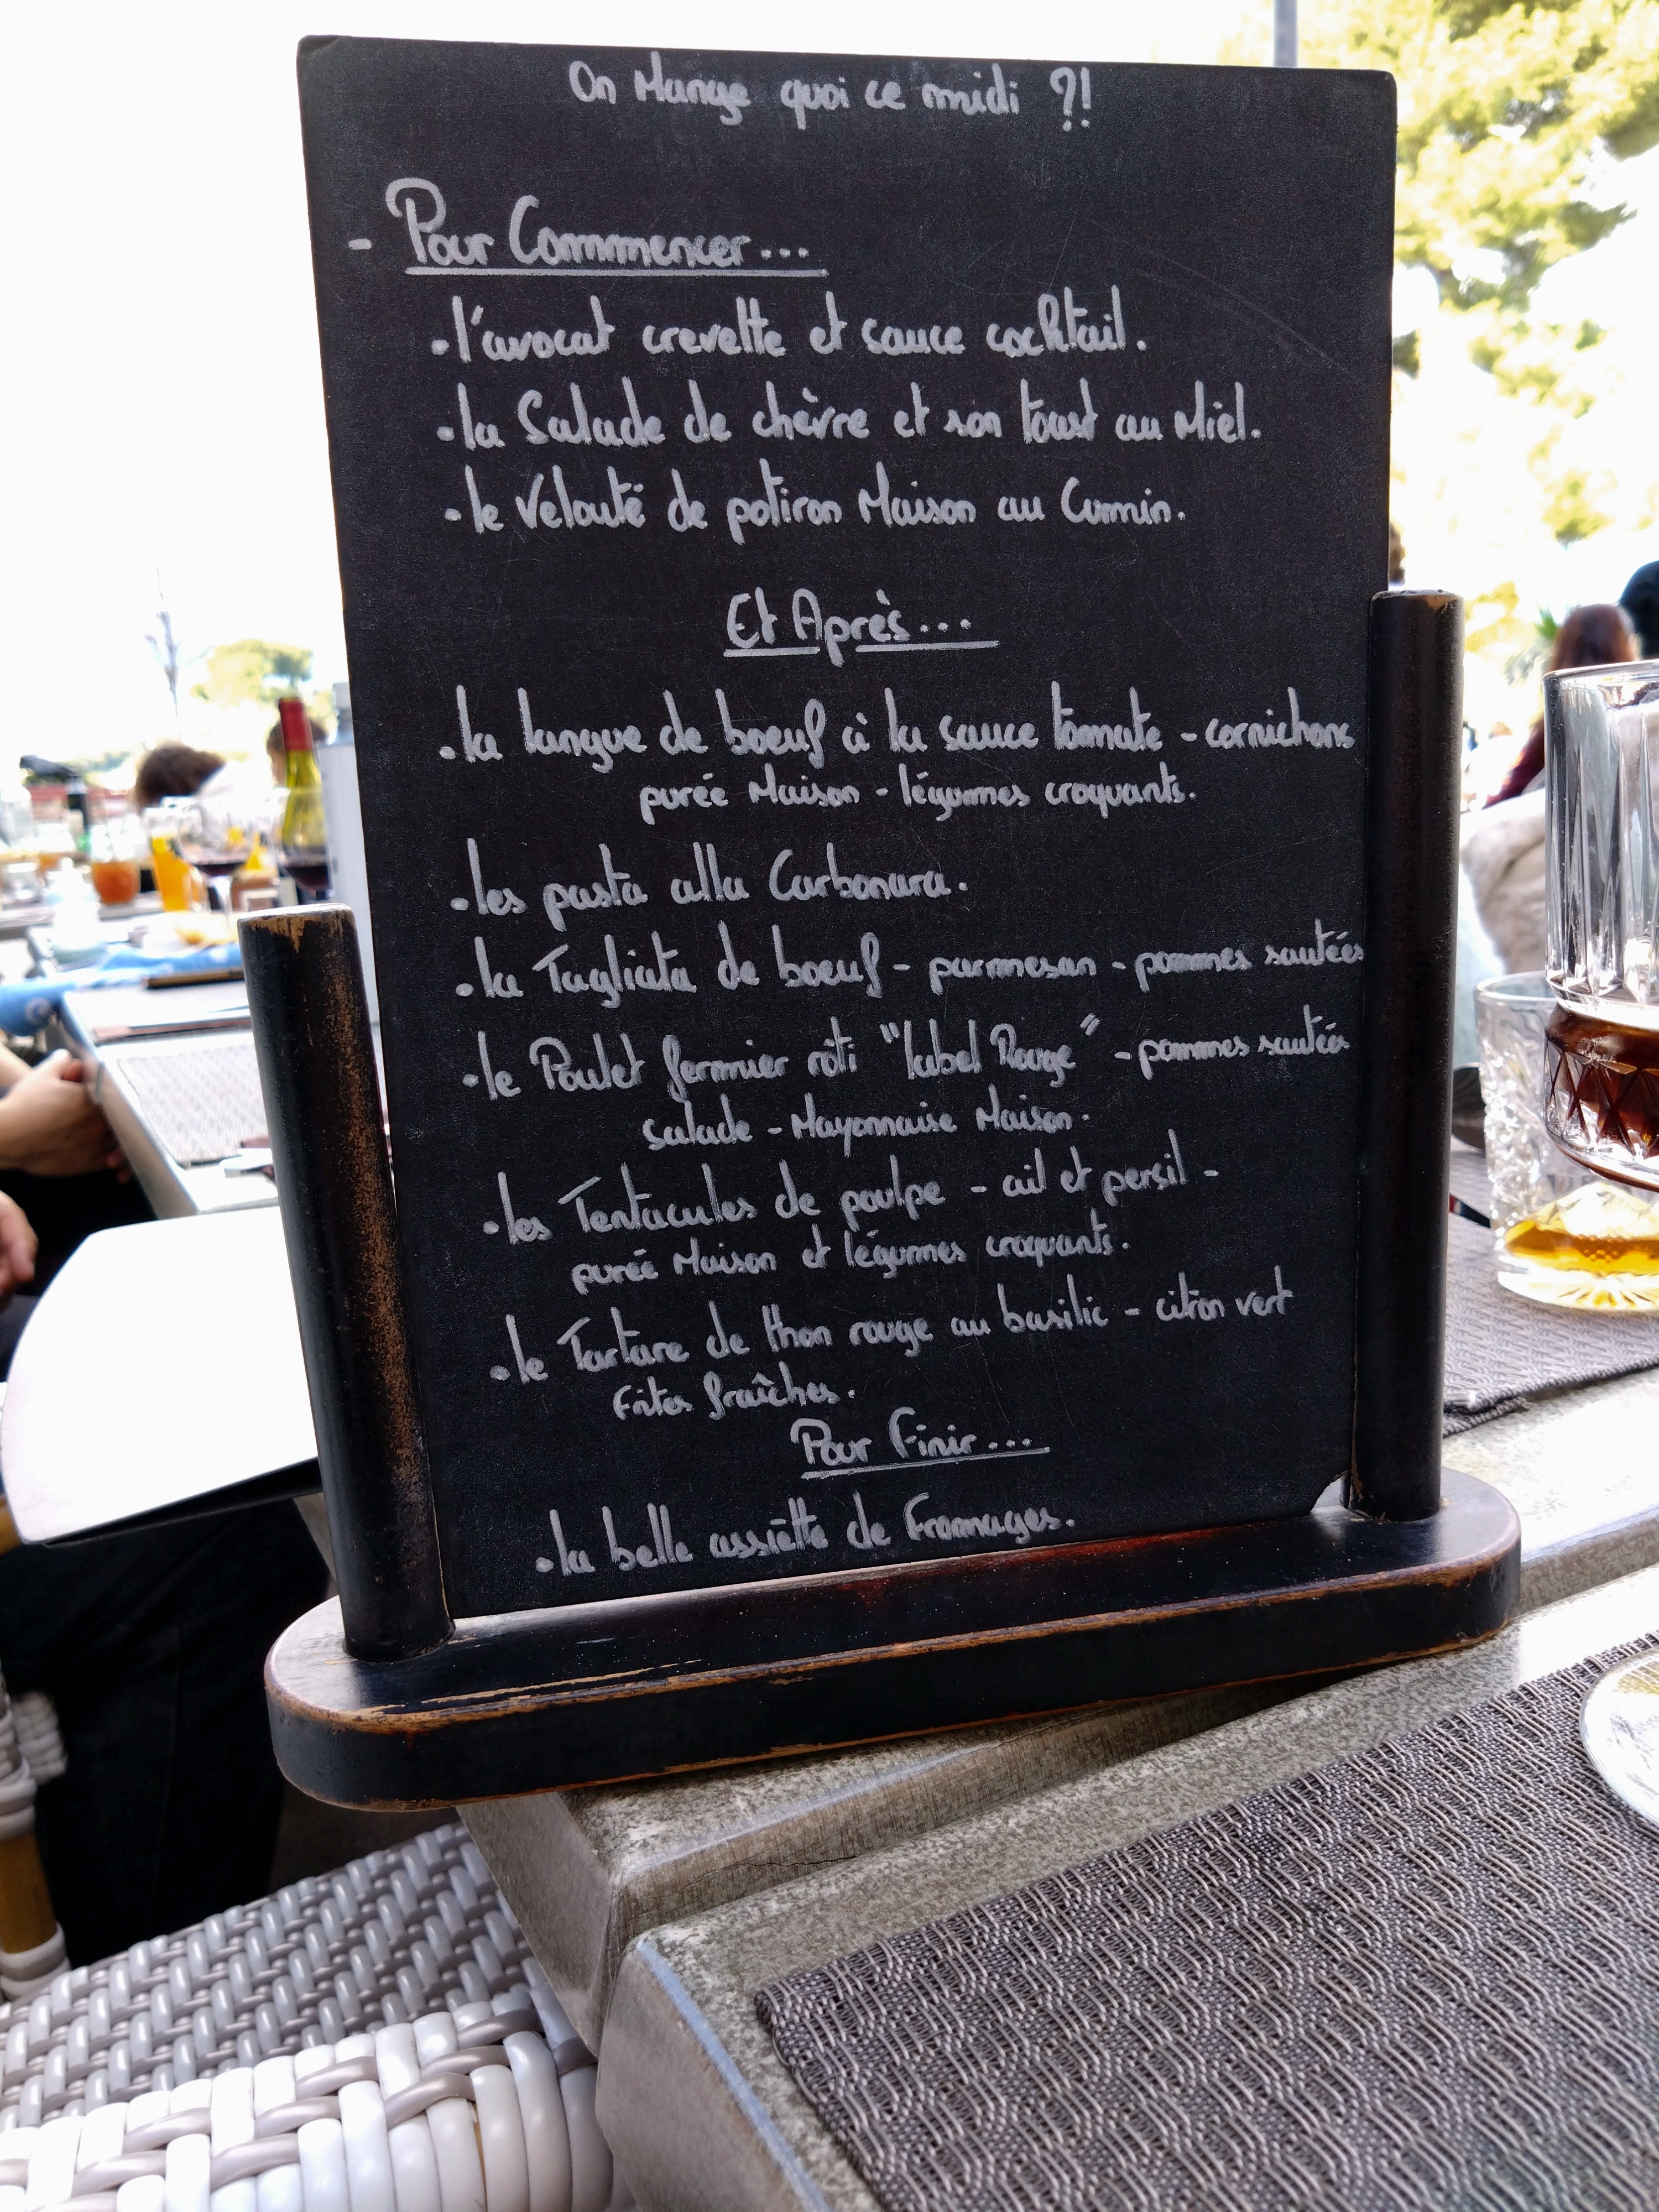 On Mange quoi ce midi ?!
- Pour Commencer...
. l'avocat crevette et sauce cocktail.
. la Salade de chèvre et son toast au Miel.
. le Velouté de potiron Maison au Cumin.
Et Après...
. la langue de boeuf à la sauce tomate - cornichons
purée Maison - légumes croquants.
. les pasta alla Carbonara.
. la Tagliata de boeuf - parmesan - pommes sautées
. le Poulet fermier rôti "label Rouge" - pommes sautées
salade - Mayonnaise Maison.
. les Tentacules de poulpe - ail et persil -
purée Maison et légumes croquants.
. le Tartare de thon rouge au basilic - citron vert
Frites fraîches.
Pour Finir...
. la belle assiette de Fromages.